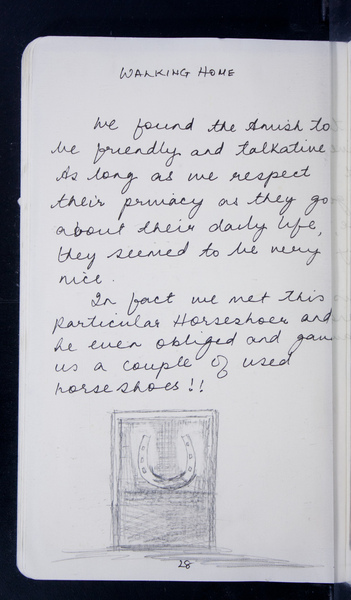 WALKING HOME
We found the Amish to
be friendly and talkative
As long as we respect
their privacy as they go
about their daily life,
they seemed to be very
nice.
In fact we met this
particular Horseshoer and
he even obliged and gave
us a couple of used
horseshoes!!
28